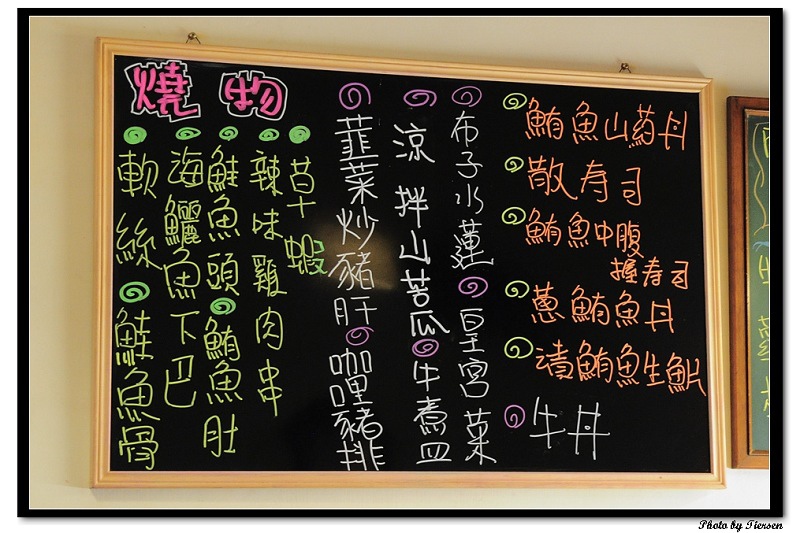 燒物
軟絲
鮭魚骨
海鱺魚下巴
鮭魚頭
鮪魚肚
辣味雞肉串
草蝦
韮菜炒豬肝
咖哩豬排
涼拌山苦瓜
牛煮皿
布子水蓮
皇宮菜
鮪魚山药丼
散寿司
鮪魚中腹
握寿司
蔥鮪魚丼
漬鮪魚生魚片
牛丼
Photo by Tiersen